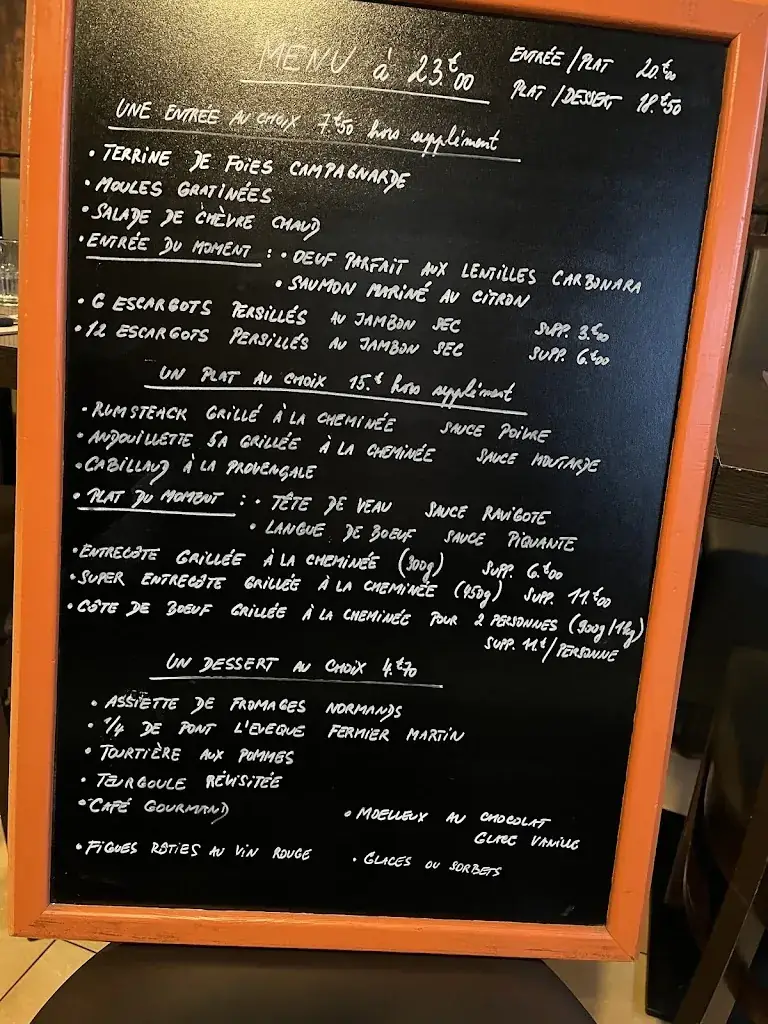 MENU à 23.€00
ENTRÉE / PLAT 20.€00
PLAT / DESSERT 18.€50
UNE ENTRÉE AU CHOIX 7.€50 hors supplément
• TERRINE DE FOIES CAMPAGNARDE
• MOULES GRATINÉES
• SALADE DE CHÈVRE CHAUD
• ENTRÉE DU MOMENT : • OEUF PARFAIT AUX LENTILLES CARBONARA
• SAUMON MARINÉ AU CITRON
• 6 ESCARGOTS PERSILLÉS AU JAMBON SEC SUPP. 3.€00
• 12 ESCARGOTS PERSILLÉS AU JAMBON SEC SUPP. 6.€00
UN PLAT AU CHOIX 15.€ hors supplément
• RUMSTEACK GRILLÉ À LA CHEMINÉE SAUCE POIVRE
• ANDOUILLETTE 5A GRILLÉE À LA CHEMINÉE SAUCE MOUTARDE
• CABILLAUD À LA PROVENÇALE
• PLAT DU MOMENT : • TÊTE DE VEAU SAUCE RAVIGOTE
• LANGUE DE BOEUF SAUCE PIQUANTE
• ENTRECÔTE GRILLÉE À LA CHEMINÉE (300g) SUPP. 6.€00
• SUPER ENTRECÔTE GRILLÉE À LA CHEMINÉE (450g) SUPP. 11.€00
• CÔTE DE BOEUF GRILLÉE À LA CHEMINÉE POUR 2 PERSONNES (900g/1kg)
SUPP. 11.€/PERSONNE
UN DESSERT AU CHOIX 4.€70
• ASSIETTE DE FROMAGES NORMANDS
• 1/4 DE PONT L'EVEQUE FERMIER MARTIN
• TOURTIÈRE AUX POMMES
• TEURGOULE RÉVISITÉE
• CAFÉ GOURMAND
• MOELLEUX AU CHOCOLAT
GLACE VANILLE
• FIGUES ROTIES AU VIN ROUGE
• GLACES OU SORBETS